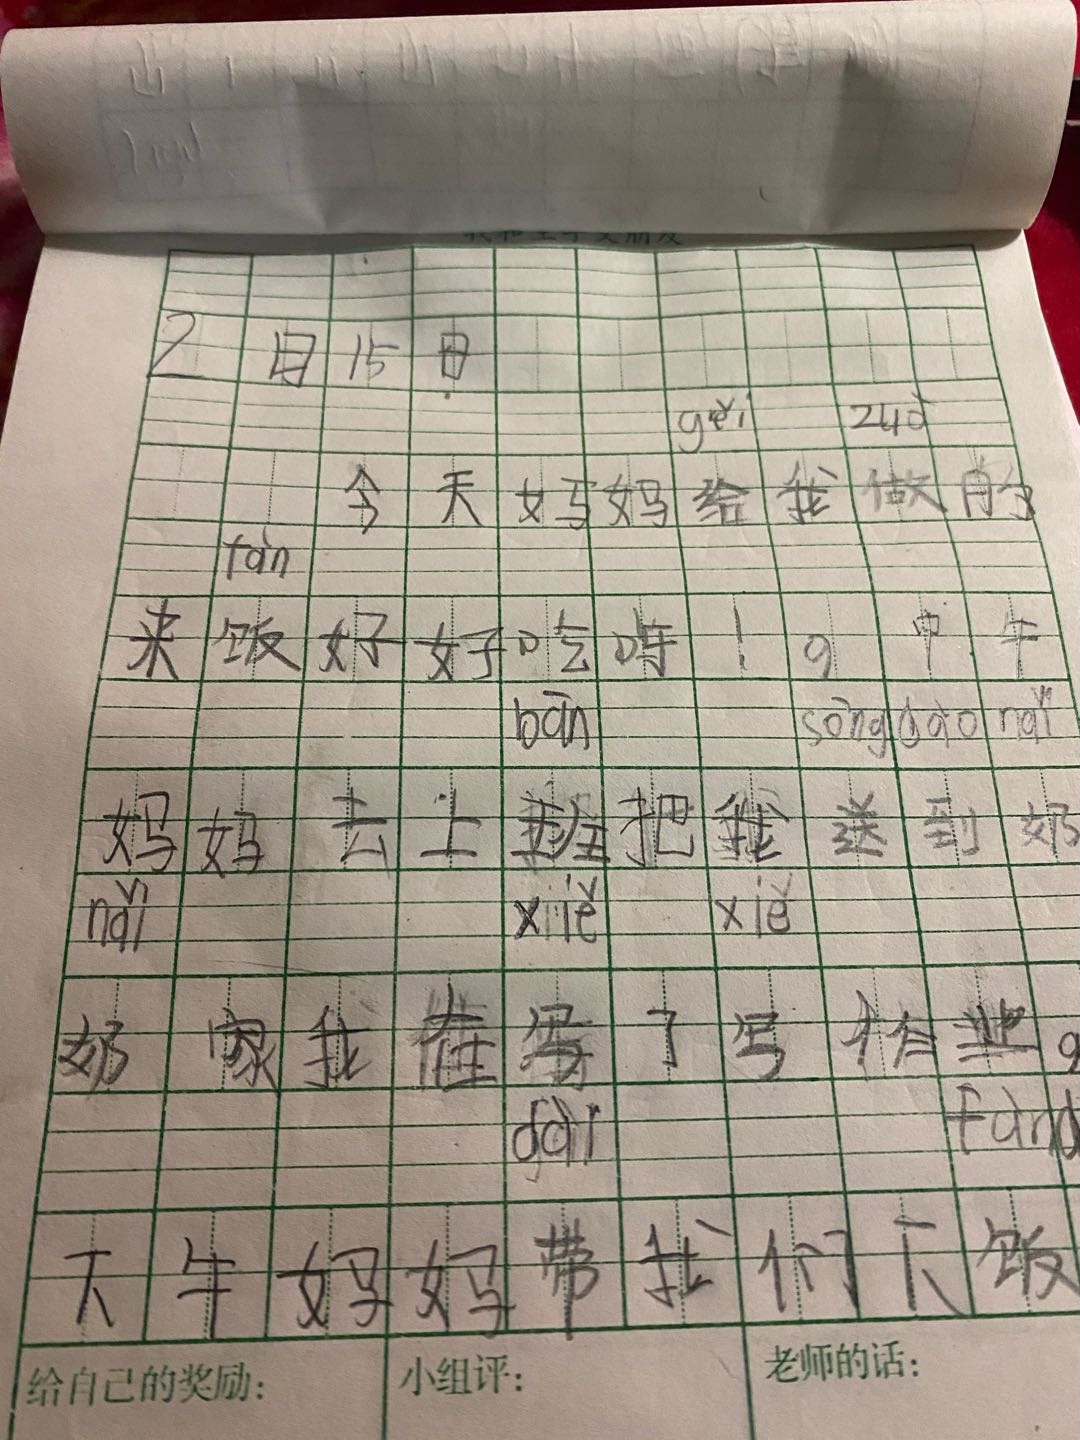 2月15日
gěi zuò
今天妈妈给我做的
fàn
来饭好好吃呀!。中午
bān sòng dào nǎi
妈妈去上班把我送到奶
nǎi xiě xiě
奶家我在写了写作业。
dài fàn
下午妈妈带我们下饭
给自己的奖励: 小组评: 老师的话: